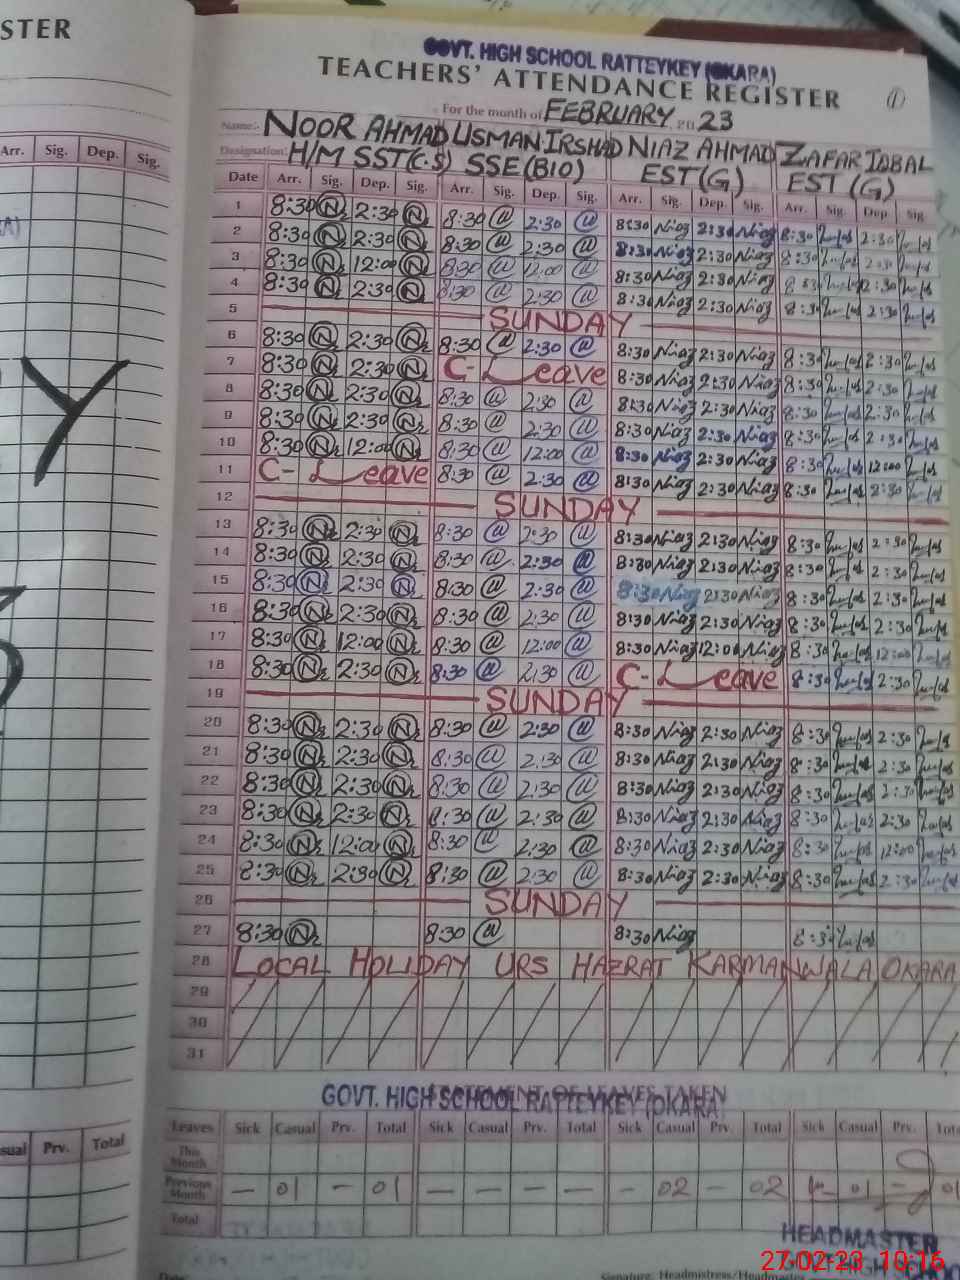 STER
GOVT. HIGH SCHOOL RATTEYKEY (OKARA)
TEACHERS' ATTENDANCE REGISTER
For the month of FEBRUARY 2023
Name:- NOOR AHMAD USMAN IRSHAD NIAZ AHMAD ZAFAR IQBAL
Designation: H/M SST(C.S) SSE(BIO) EST(G) EST(G)
Arr. Sig. Dep. Sig. Date Arr. Sig. Dep. Sig. Arr. Sig. Dep. Sig. Arr. Sig. Dep. Sig. Arr. Sig. Dep. Sig.
1 8:30 N 2:30 N 8:30 @ 2:30 @ 8:30 Niaz 2:30 Niaz 8:30 2:30
2 8:30 N 2:30 N 8:30 @ 2:30 @ 8:30 Niaz 2:30 Niaz 8:30 2:30
3 8:30 N 12:00 N 8:30 @ 12:00 @ 8:30 Niaz 2:30 Niaz 8:30 2:30
4 8:30 N 2:30 N 8:30 @ 2:30 @ 8:30 Niaz 2:30 Niaz 8:30 2:30
5 SUNDAY
6 8:30 N 2:30 N 8:30 @ 2:30 @ 8:30 Niaz 2:30 Niaz 8:30 2:30
7 8:30 N 2:30 N C-Leave 8:30 Niaz 2:30 Niaz 8:30 2:30
8 8:30 N 2:30 N 8:30 @ 2:30 @ 8:30 Niaz 2:30 Niaz 8:30 2:30
9 8:30 N 2:30 N 8:30 @ 2:30 @ 8:30 Niaz 2:30 Niaz 8:30 2:30
10 8:30 N 12:00 N 8:30 @ 12:00 @ 8:30 Niaz 2:30 Niaz 8:30 12:00
11 C-Leave 8:30 @ 2:30 @ 8:30 Niaz 2:30 Niaz 8:30 2:30
12 SUNDAY
13 8:30 N 2:30 N 8:30 @ 2:30 @ 8:30 Niaz 2:30 Niaz 8:30 2:30
14 8:30 N 2:30 N 8:30 @ 2:30 @ 8:30 Niaz 2:30 Niaz 8:30 2:30
15 8:30 N 2:30 N 8:30 @ 2:30 @ 8:30 Niaz 2:30 Niaz 8:30 2:30
16 8:30 N 2:30 N 8:30 @ 2:30 @ 8:30 Niaz 2:30 Niaz 8:30 2:30
17 8:30 N 12:00 N 8:30 @ 12:00 @ 8:30 Niaz 12:00 Niaz 8:30 12:00
18 8:30 N 2:30 N 8:30 @ 2:30 @ C-Leave 8:30 2:30
19 SUNDAY
20 8:30 N 2:30 N 8:30 @ 2:30 @ 8:30 Niaz 2:30 Niaz 8:30 2:30
21 8:30 N 2:30 N 8:30 @ 2:30 @ 8:30 Niaz 2:30 Niaz 8:30 2:30
22 8:30 N 2:30 N 8:30 @ 2:30 @ 8:30 Niaz 2:30 Niaz 8:30 2:30
23 8:30 N 2:30 N 8:30 @ 2:30 @ 8:30 Niaz 2:30 Niaz 8:30 2:30
24 8:30 N 12:00 N 8:30 @ 2:30 @ 8:30 Niaz 2:30 Niaz 8:30 12:00
25 8:30 N 2:30 N 8:30 @ 2:30 @ 8:30 Niaz 2:30 Niaz 8:30 2:30
26 SUNDAY
27 8:30 N 8:30 @ 8:30 Niaz 8:30
28 LOCAL HOLIDAY URS HAZRAT KARMANWALA OKARA
29
30
31
STATEMENT OF LEAVES TAKEN
GOVT. HIGH SCHOOL RATTEYKEY (OKARA)
Prv. Total Leaves Sick Casual Prv. Total Sick Casual Prv. Total Sick Casual Prv. Total Sick Casual Prv.
This Month
Previous Month — 01 — 01 — — — — — 02 — 02 01 —
Total
HEADMASTER
GOVT. HIGH SCHOOL
Signature: Headmistress/Headmaster
27-02-23 10:16